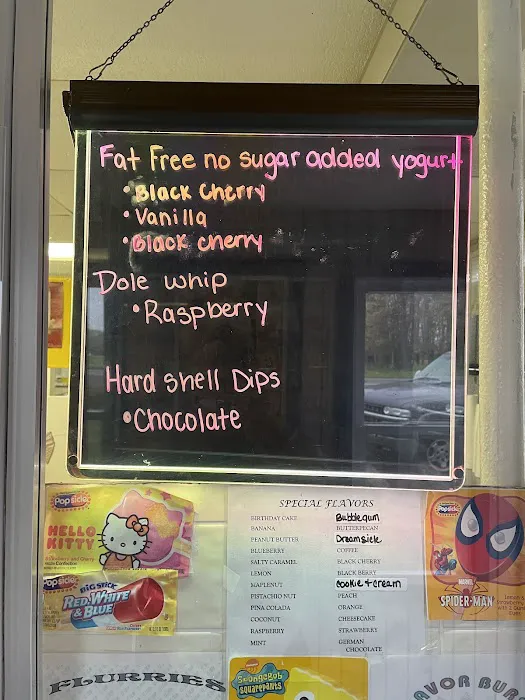 Fat Free no sugar added yogurt
• Black Cherry
• Vanilla
• Black cherry
Dole whip
• Raspberry
Hard Shell Dips
• Chocolate
Popsicle
HELLO
KITTY
Popsicle
BIG STICK
RED, WHITE
& BLUE
SPECIAL FLAVORS
BIRTHDAY CAKE Bubblegum
BANANA BUTTERPECAN
PEANUT BUTTER Dreamsicle
BLUEBERRY COFFEE
SALTY CARAMEL BLACK CHERRY
LEMON BLACK BERRY
MAPLENUT Cookie + cream
PISTACHIO NUT PEACH
PINA COLADA ORANGE
COCONUT CHEESECAKE
RASPBERRY STRAWBERRY
MINT GERMAN
CHOCOLATE
Popsicle
MARVEL
SPIDER-MAN
FLURRIES
SpongeBob
SQUAREPANTS